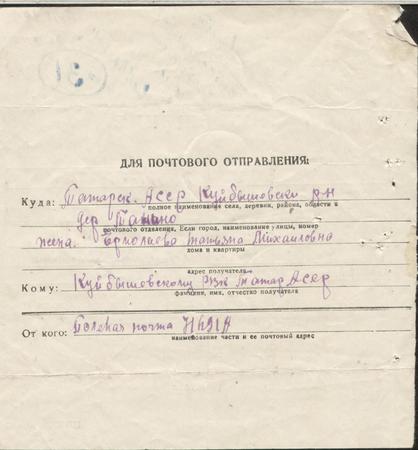 31
ДЛЯ ПОЧТОВОГО ОТПРАВЛЕНИЯ:
Куда: Татарск. Асср Куйбышевски р-н
полное наименование села, деревни, района, области и
дер Танино
почтового отделения, Если город, наименование улицы, номер
жена. Ермолаева татьяна Михаиловна
дома и квартиры
адрес получателя
Кому: Куйбышевскому рвк татар Асср
фамилия, имя, отчество получателя
От кого: Полевая почта
наименование части и ее почтовый адрес